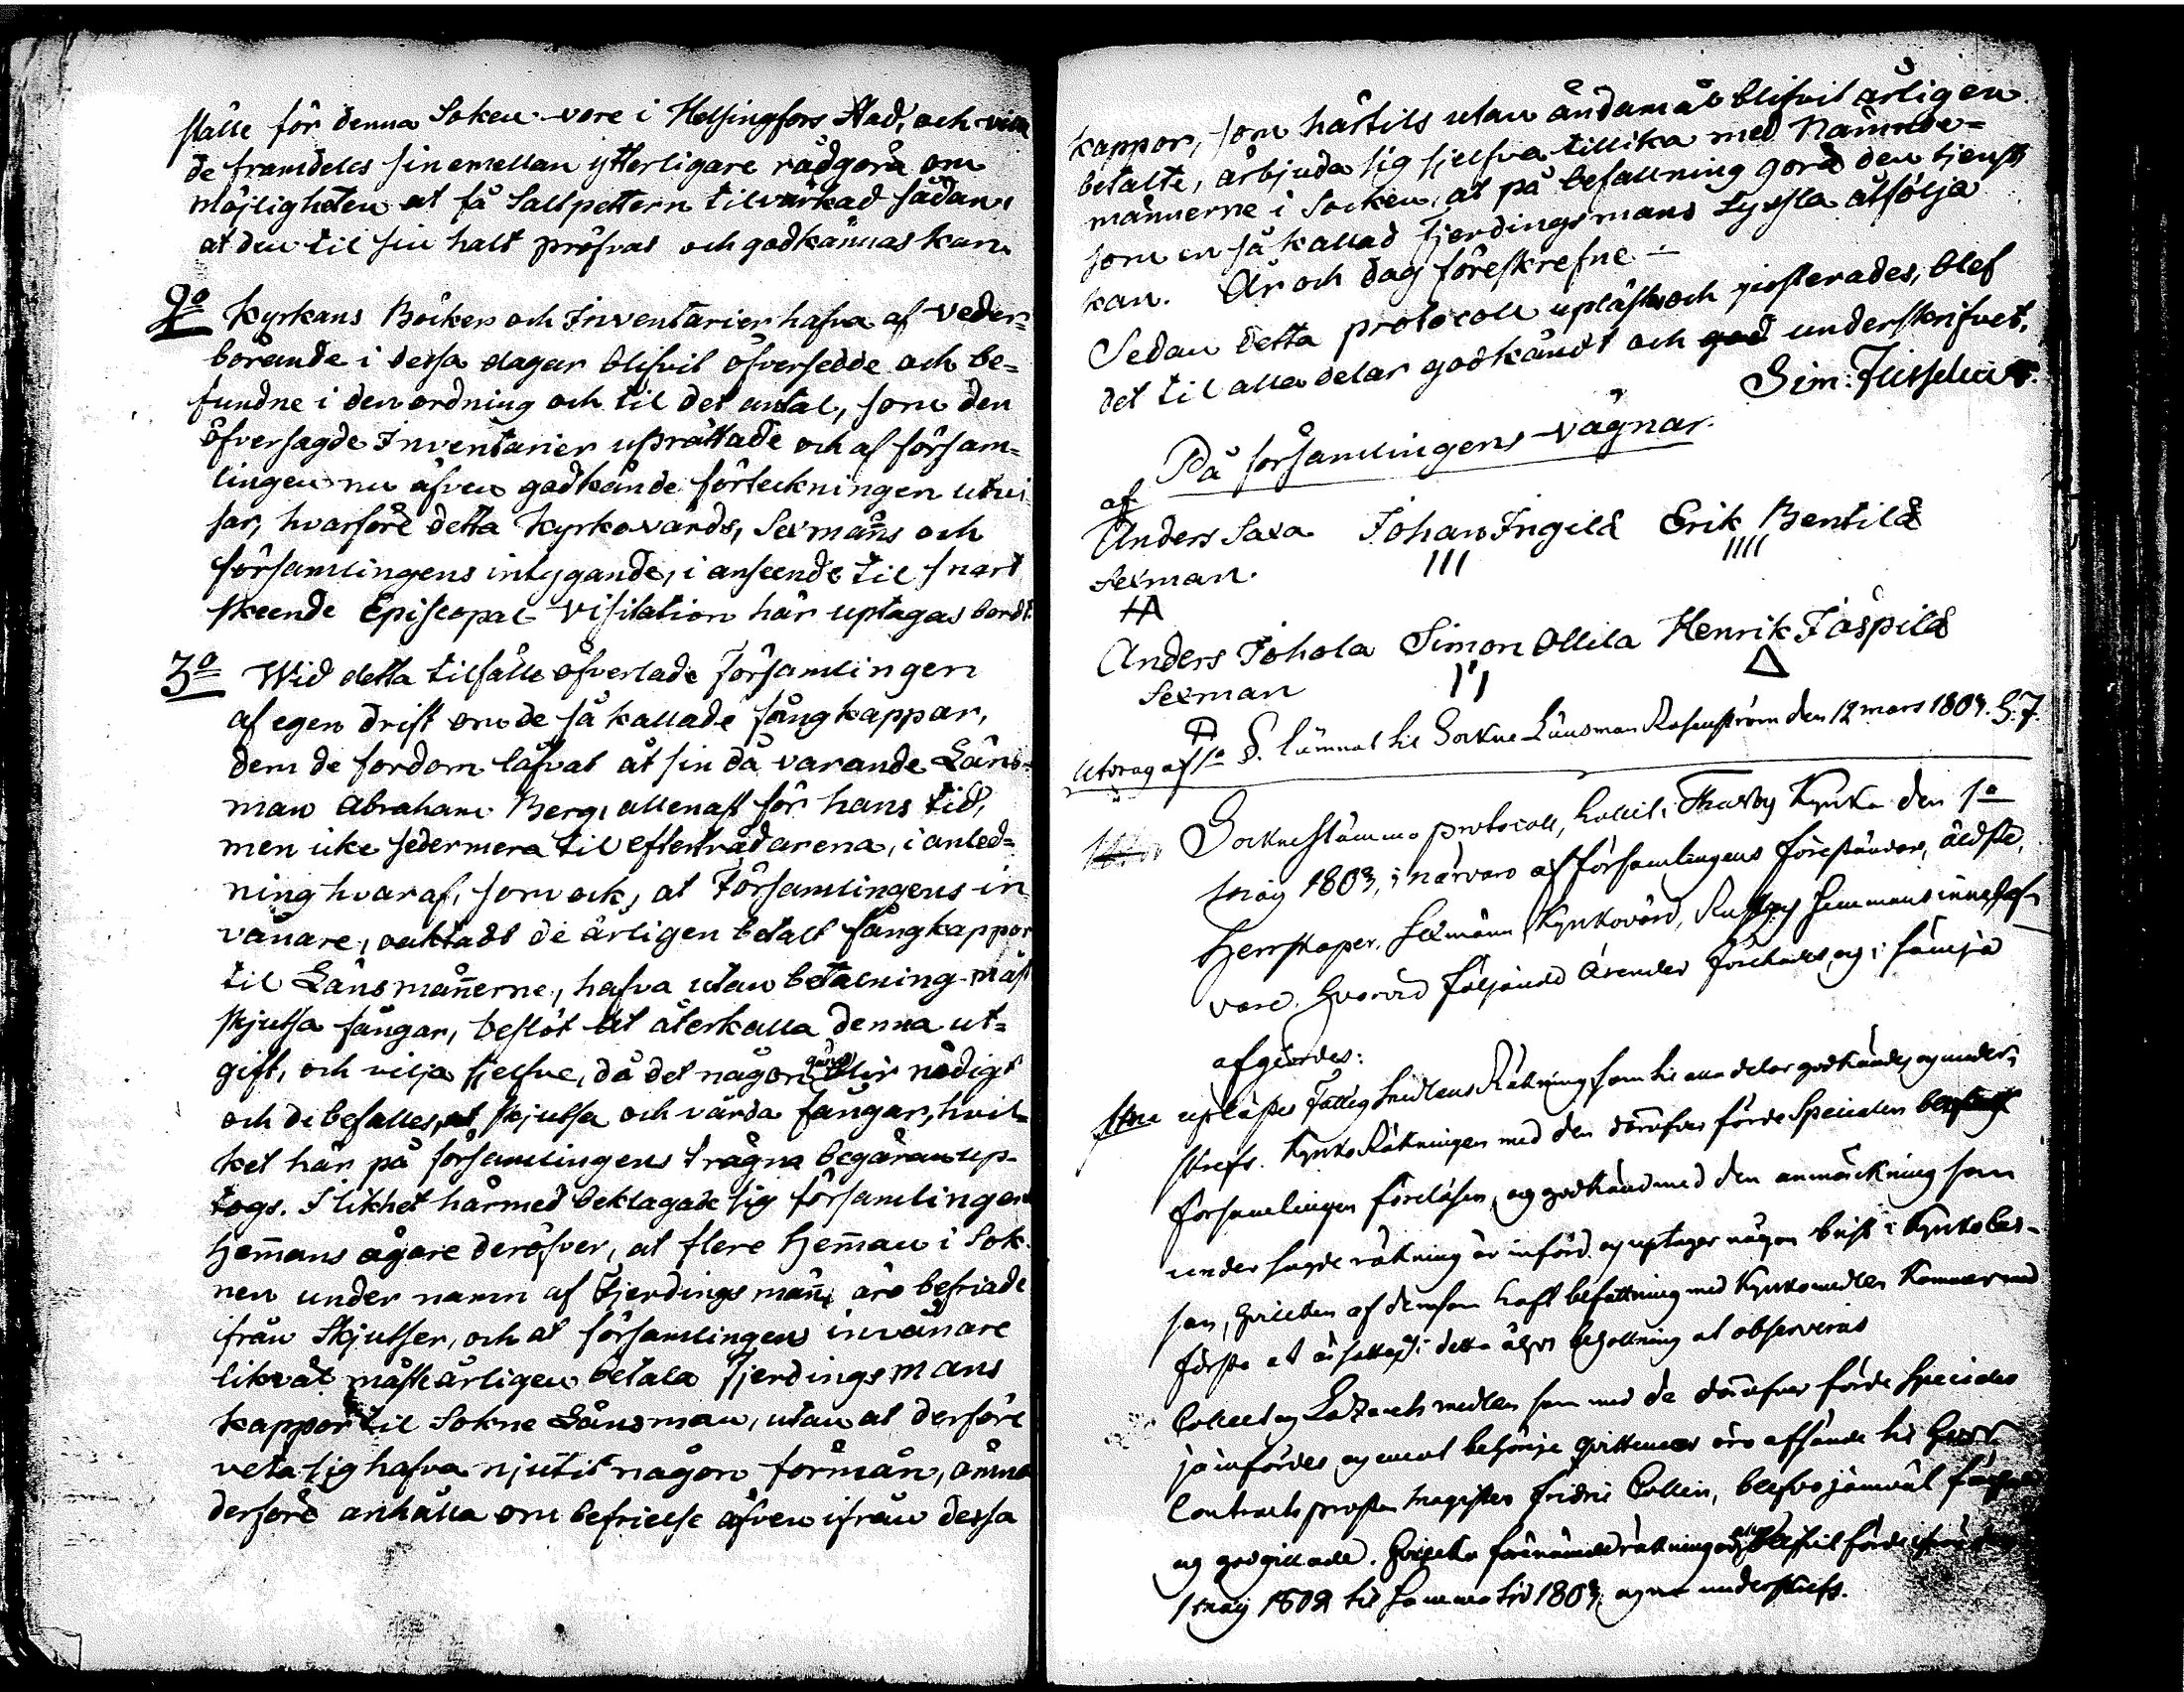 ställe för denna Soken vore i Helsingfors Stad, och vilja
de framdeles sinemellan ytterligare rådgöra om
möjligheten at få Saltpettern tilvärkad sådan,
at den til sin halt pröfvas och godkännas kan.
2o Kyrkans Böcker och Inventarier hafva af veder=
börande i dessa dagar blifvit öfversedde och be=
fundne i den ordning och til det antal, som den
öfversagde Inventarier uprättade och af försam=
lingen nu äfven godkände förteckningen utvi
sar, hvarföre detta Kyrkovärds, Sexmäns och
församlingens intygande, i anseende til snart
skeende Episcopal-Visitation här uptagas borde.
3o Wid detta tilfälle öfverlade Församlingen
af egen drift om de så kallade fångkappar,
dem de fordom låfvat åt sin då varande Läns=
man Abraham Berg, allenast för hans tid,
men icke sedermera til efterträdarena, i anled=
ning hvaraf, som ock, at Församlingens in
vånare, oaktadt de årligen betalt fångkappor
til Länsmännerne, hafva utan betalning måst
skjutsa fångar, beslöt at återkalla denna ut=
gift, och vilja sjelfve, då det någon gång blir nödigt
och de befalles, at skjutsa och vårda fångar, hvil=
ket här på församlingens trägna begäran up-
togs. I likhet härmed beklagade sig församlingens
Hemans ägare deröfver, at flere Heman i Sok
nen under namn af Fjerdings män äro befriade
ifrån Skjutser, och at församlingens invånare
likväl måste årligen betala Fjerdingsmans
kappor til Sokne Länsman, utan at derföre
veta sig hafva njutit någon förmån,
derföre anhålla om befrielse äfven ifrån dessa
kappor, som härtils utan ändamål blifvit årligen
betalte, ärbjuda sig sjelfva tillika med Nämde=
männerne i Socken, at på befallning göra den tjenst
som en så kallad Fjerdingsmans Syssla åtfölja
kan. År och dag föreskrefne —
Sedan detta protocoll uplästes och justerades, blef
det til alla delar godkändt och underskrifvet.
Sim:
På församlingens vägnar.
af
Anders Saxa Johan Ingilä Erik Bentilä
Sexman.
Anders Johola Simon Ollila Henrik Jäspilä
Sexman
Utdrag af 1o §. lämnat til Sokne Länsman Rosenström den 12 mars 1803. S. F.
SockneStämmo protocoll, hållit i Thusby Kyrka den 1o
Maij 1803, i närvaro af Församlingens föreståndare, äldste,
Herrskaper, Sexmän, Kyrkovärd, Hemmans innehaf
vare. Hvarvid följande ärender förehades, og i sämja
afgiordes:
1mo uplästes Fattig Medlens Räkning, som til alla delar godkändes og under,
skrefs. Kyrko Räkningen med den däröfver förde Specialen
Församlingen föreläsen, og godkänd med den anmärkning som
under sagde räkning är införd og uptager någon brist i Kyrko Cas-
san, hvilken af dem som haft befattning med Kyrkomedlen kommer med
första at ärsättas; i detta afseende at observeras
Collect og medlen som med de däröfver förde Specialer
jämfördes og emot behörige quittencer äro afsände til Herr
Contracts prosten Magister Fridric Collin, blefvo jämväl
og godgillade. Hvilka förenämde räkningar blifvit förde ifrån
1 Maij 1802 til samma tid 1803, og nu underskrefs.